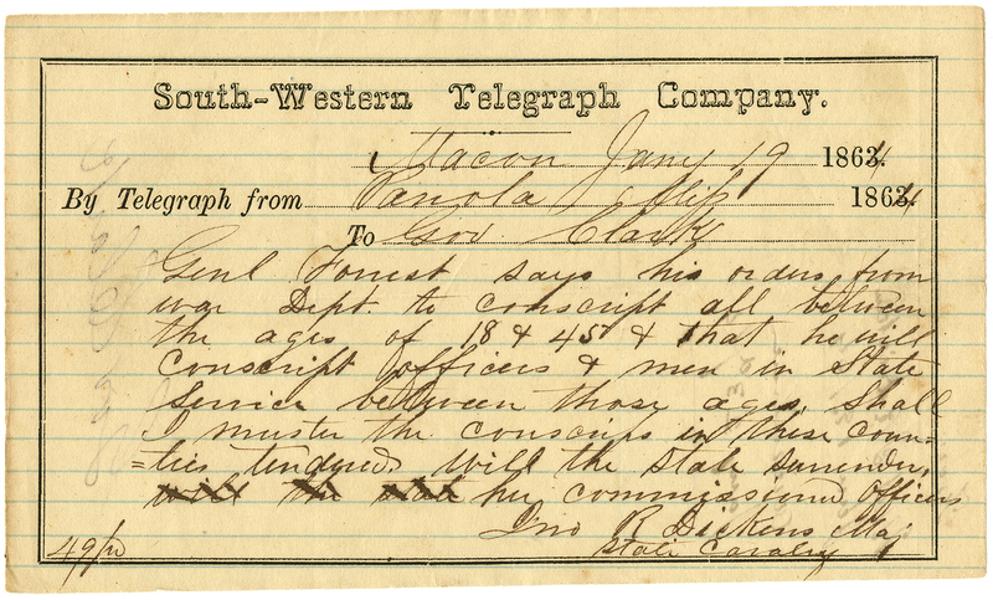 South-Western Telegraph Company.
Macon Jany 19 1864
By Telegraph from Panola Miss 1864
To Gov Clark
Genl Forrest says his orders from
war Dept. to conscript all between
the ages of 18 & 45 & that he will
conscript officers & men in State
Service between those ages, Shall
I muster the conscrips in these coun=
=ties tendered. Will the State surrender,
will the state her commissioned officers
Jno R Dickens Maj
State Cavalry
49/